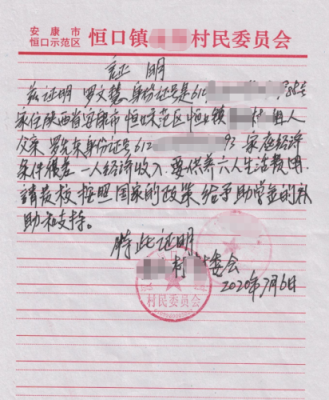 安康市
恒口示范区
恒口镇 村民委员会
证明
兹证明 罗文慧 身份证号是61 88号
家住陕西省安康市恒口示范区恒口镇 村 因
父亲 罗东身份证号612 93 家庭经济
条件很差 一人经济收入 要供养六人生活费用
请贵校按照国家的政策给予助学金的补
助和支持。
特此证明
村 委会
2020年7月6日
村民委员会